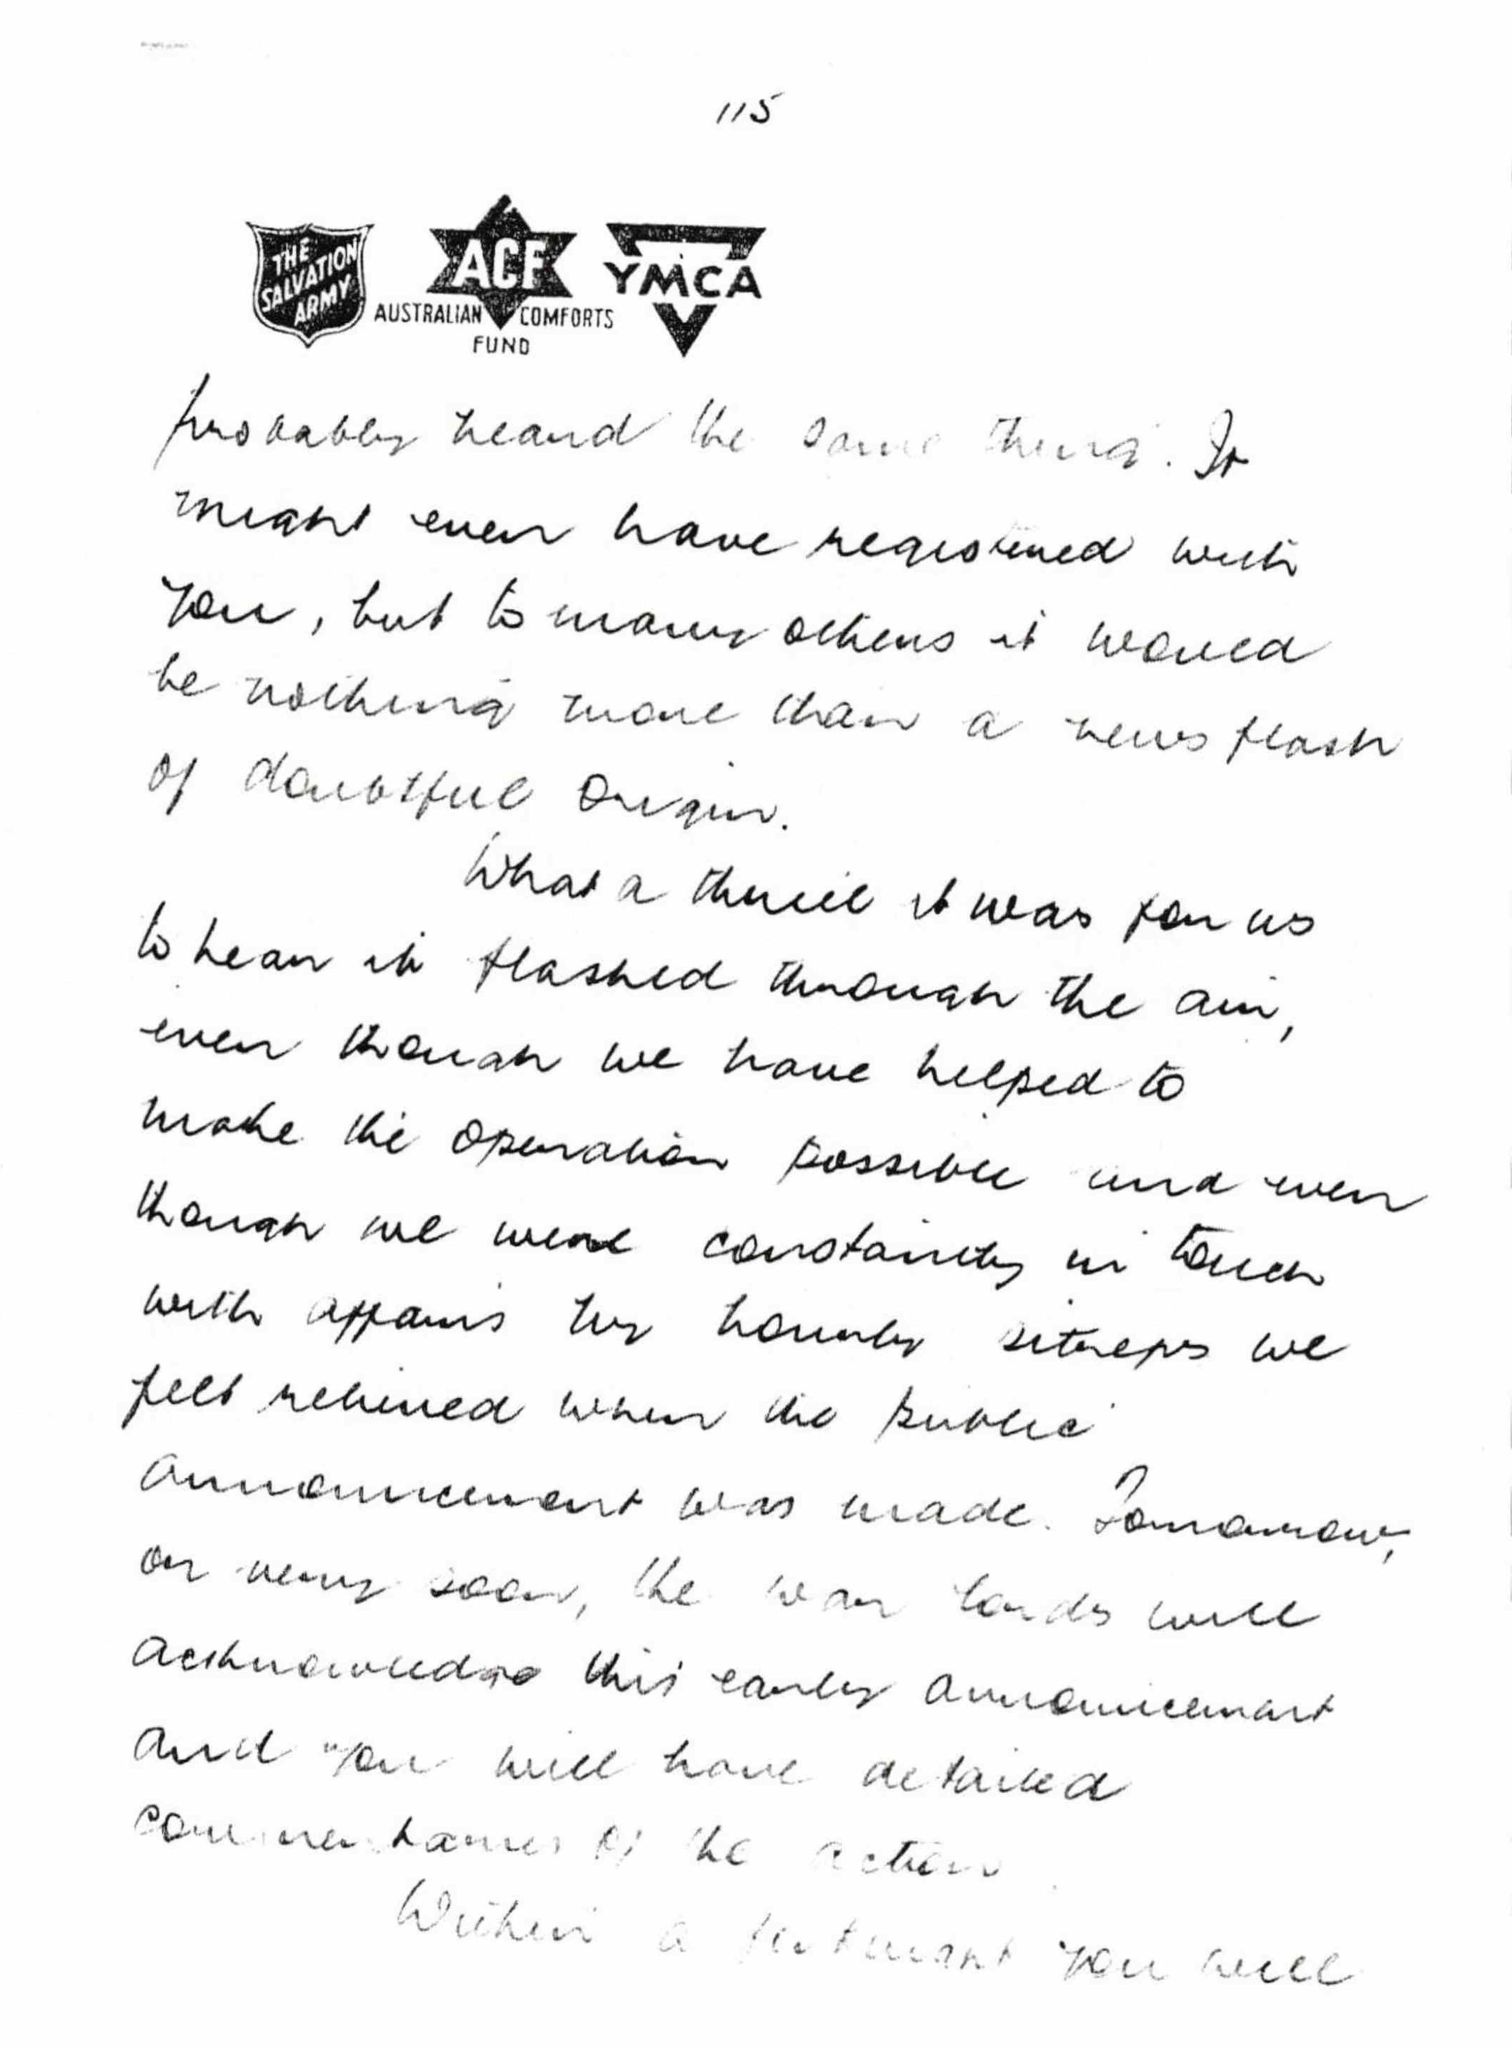 115
THE
SALVATION
ARMY
ACF
AUSTRALIAN COMFORTS
FUND
YMCA
probably heard the same thing. It
might even have registered with
you, but to many others it would
be nothing more than a news flash
of doubtful origin.
What a thrill it was for us
to hear it flashed through the air,
even though we have helped to
make the operation possible and even
though we were constantly in touch
with affairs by hourly sitreps we
felt relieved when the public
announcement was made. Tomorrow,
or very soon, the war lords will
acknowledge this early announcement
and you will have detailed
commentaries of the action.
Within a fortnight you will